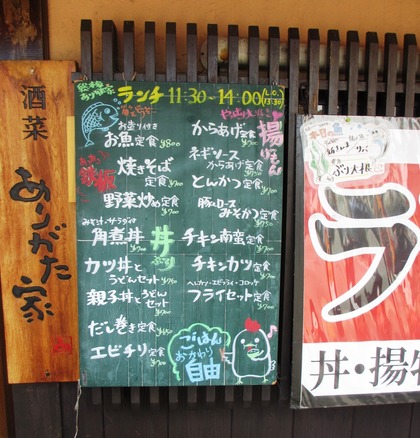 酒菜
ありがた家
ランチ 11:30～14:00 (L.O. 13:30)
お造り付き
お魚定食 ¥800
鉄板
焼きそば
定食 ¥700
野菜炒め定食 ¥700
みそ汁・サラダ付
丼ぶり
角煮丼 ¥700
カツ丼と
うどんセット
親子丼とうどん
セット
だし巻き定食
エビチリ定食
揚げもん
からあげ定食
ネギソース
からあげ定食
とんかつ定食
豚ヒロース
みそかつ定食
チキン南蛮定食
チキンカツ定食
ヘレカツ・エビフライ・コロッケ
フライセット定食
ごはん
おかわり
自由
本日の魚
ぶり大根
ラ
丼・揚物